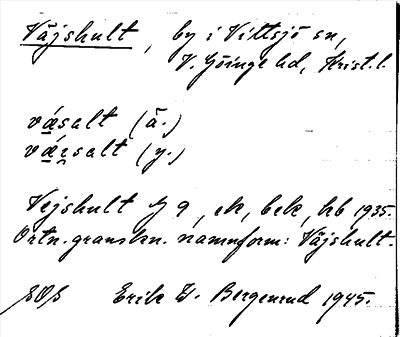 Väjshult, by i Vittsjö sn,
V. Göinge hd, Krist. l.
væsalt (ä.)
væɪsalt (y.)
Vejshult 9, ek, bek, hb 1935.
Ortn. granskn. namnform: Väjshult.
Erik W. Bergenrud 1945.